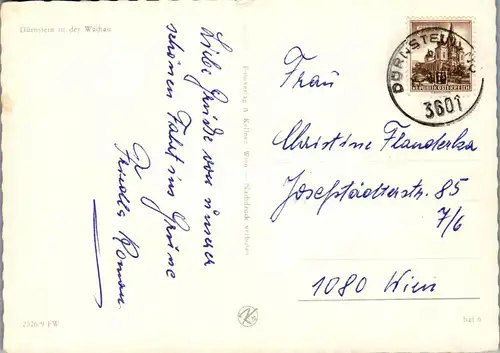 Dürnstein in der Wachau
Liebe Grüße von unserer
schönen Fahrt ins Grüne
Roman
2326/9 FW
A. Kellner, Wien
Nachdruck verboten
DÜRNSTEIN
3601
REPUBLIK ÖSTERREICH
Frau
Christine Flanderka
Josefstädterstr. 85
7/6
1080 Wien
K